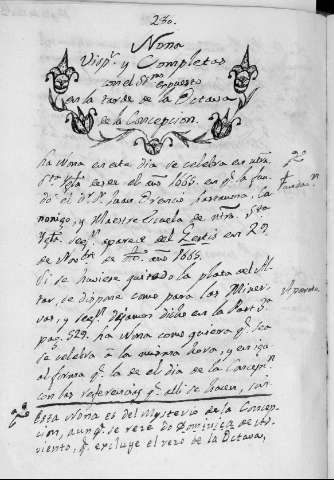 230.
Nona
Visp.s y Completas
con el SS.mo expuesto
en la tarde de la Octava
de la Concepcion.
La Nona en este dia se celebra en ntra
Sta Iglª desde el año 1665. en q.e la fun
do el Dr D. Juan Ca
nonigo, y Maestre Escuela de ntra. Sta
Iglª. seg.n aparece del en 29
de Nov.re de año 1665.
Si se huviere quitado la plata del Al
tar, se dispone como para las Miner
vas, y seg.n dejamos dicho en la Part. 3ª
pag. 529. La Nona como quiera q.e sea
se celebra â la misma hora, y en ig.l
forma q.e la de el dia de la Concep.n
con las referencias q.e alli se hacen,
Esta Nona es del Mysterio de la Concep
cion, aunq.e se rece de Dominica de Ad
viento, q.e excluye el rezo de la Octava,